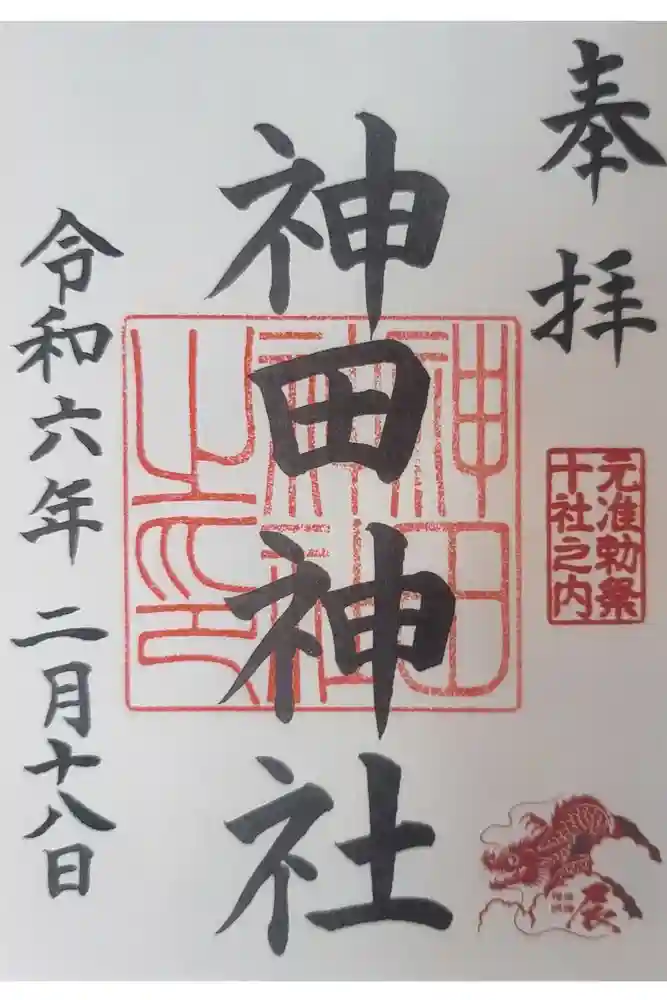 奉拝
元准勅祭
十社之内
辰
神田神社
神田
神社
之印
令和六年 二月十八日